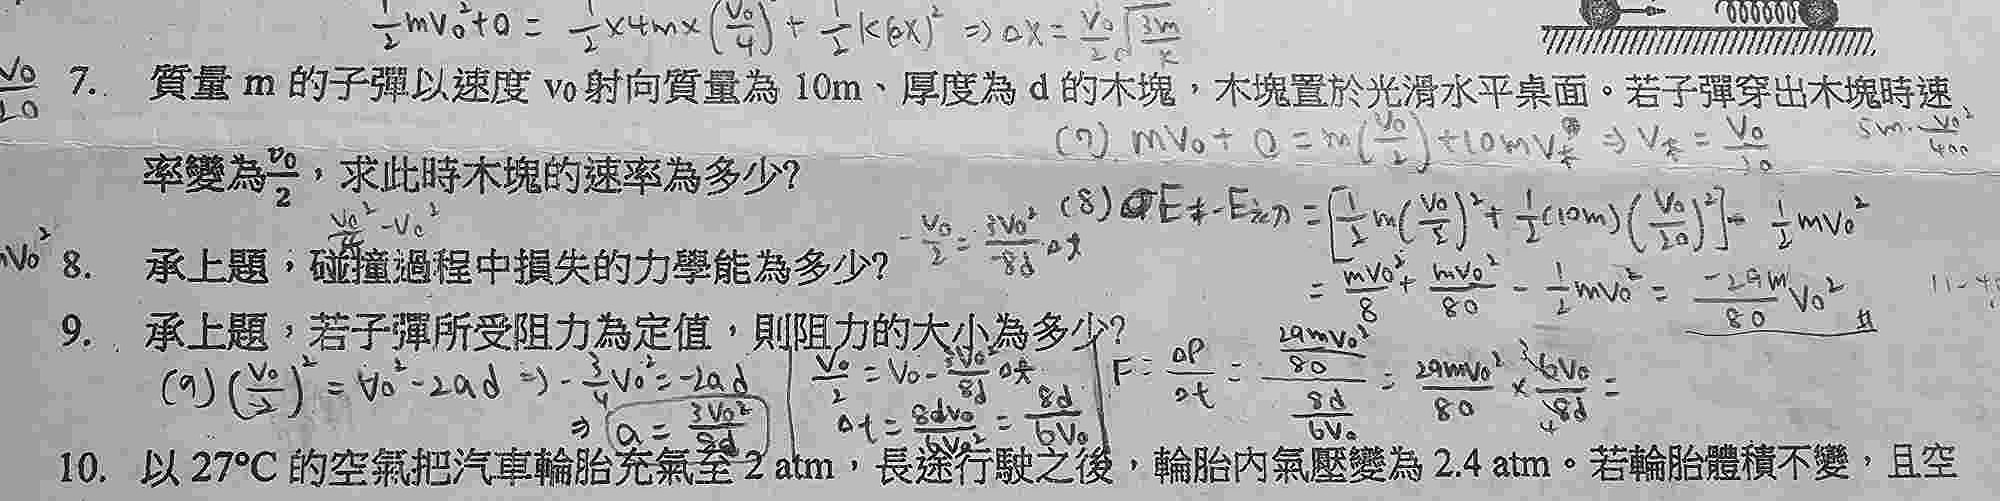 ½mV₀²+0 = ½×4m×(V₀/4)² + ½k(Δx)² ⇒ Δx = V₀/2 √(3m/k)
V₀/20
7. 質量 m 的子彈以速度 v₀ 射向質量為 10m、厚度為 d 的木塊，木塊置於光滑水平桌面。若子彈穿出木塊時速
(7) mV₀ + 0 = m(V₀/2) + 10mV木 ⇒ V木 = V₀/20
5m·V₀²/400
率變為 v₀/2，求此時木塊的速率為多少?
(8) E末-E初 = [½m(V₀/2)² + ½(10m)(V₀/20)²] - ½mV₀²
-V₀/2 = 3V₀²/-8d Δt
8. 承上題，碰撞過程中損失的力學能為多少?
= mV₀²/8 + mV₀²/80 - ½mV₀² = -29m/80 V₀² #
9. 承上題，若子彈所受阻力為定值，則阻力的大小為多少?
(9) (V₀/2)² = V₀² - 2ad ⇒ -¾V₀² = -2ad
⇒ a = 3V₀²/8d
V₀/2 = V₀ - 3V₀²/8d Δt
Δt = 8dV₀/6V₀² = 8d/6V₀
F = ΔP/Δt = (29mV₀²/80)/(8d/6V₀) = 29mV₀²/80 × 6V₀/8d =
10. 以 27°C 的空氣把汽車輪胎充氣至 2 atm，長途行駛之後，輪胎內氣壓變為 2.4 atm。若輪胎體積不變，且空